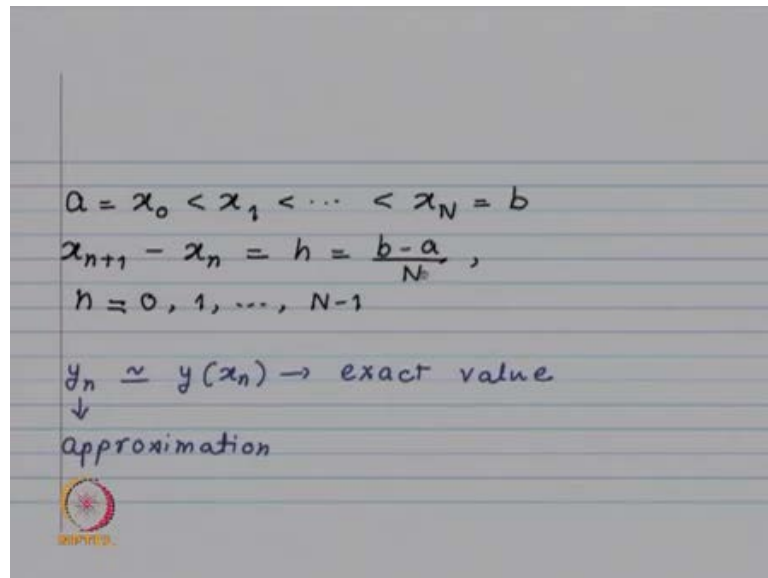 a = x₀ < x₁ < ⋯ < x_N = b
xₙ₊₁ − xₙ = h = (b − a)/N ,
n = 0, 1, ⋯, N−1
yₙ ≃ y(xₙ) → exact value
↓
approximation
NPTEL